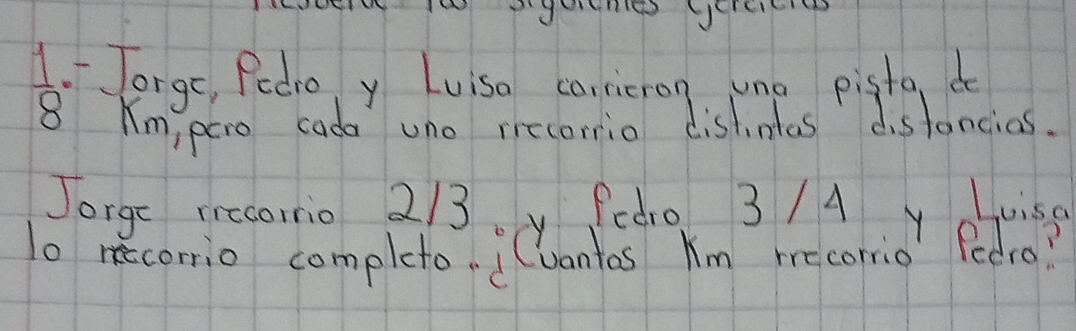 1.- Jorge, Pedro y Luisa corrieron una pista de
8 Km, pero cada uno rrecorrio distintas distancias.
Jorge rrecorrio 2/3 y Pedro 3/4 y Luisa
lo reccorrio completo. ¿Cuantos Km rrecorrio Pedro?